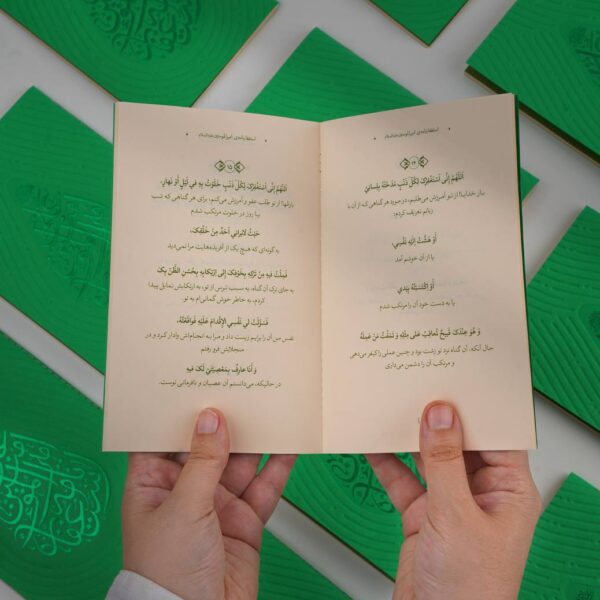 استغفارنامه‌ی امیرالمومنین علیه‌السلام
۱۴
اَللّهُمَّ إِنّی اَسْتَغْفِرُکَ لِکُلِّ ذَنْبٍ مَدَحَتْهُ لِسانی
بار خدایا! از تو آمرزش می‌طلبم، در مورد هر گناهی که از آن با
زبانم تعریف کردم؛
أَوْ هَشَّتْ إِلَیْهِ نَفْسی،
یا از آن خوشم آمد
أَوِ اکْتَسَبْتُهُ بِیَدی
یا به دست خود آن را مرتکب شدم
وَ هُوَ عِنْدَکَ قَبیحٌ تُعاقِبُ عَلی مِثْلِهِ وَ تَمْقُتُ مَنْ عَمِلَهُ
حال آنکه، آن گناه نزد تو زشت بود و چنین عملی را کیفر می‌دهی
و مرتکب آن را دشمن می‌داری
استغفارنامه‌ی امیرالمومنین علیه‌السلام
۱۵
اَللّهُمَّ إِنّی اَسْتَغْفِرُکَ لِکُلِّ ذَنْبٍ خَلَوْتُ بِهِ فی لَیْلٍ أَوْ نَهارٍ،
بارالها! از تو طلب عفو و آمرزش می‌کنم، برای هر گناهی که شب
یا روز در خلوت مرتکب شدم
حَیْثُ لایَرانی أَحَدٌ مِنْ خَلْقِکَ،
به گونه‌ای که هیچ یک از آفریده‌هایت مرا نمی‌دید
فَمِلْتُ فیهِ مِنْ تَرْکِهِ بِخَوْفِکَ إِلَی ارْتِکابِهِ بِحُسْنِ الظَّنِّ بِکَ
به جای ترک آن گناه، به سبب ترس از تو، به ارتکابش تمایل پیدا
کردم، به خاطر خوش گمانی‌ام به تو.
فَسَوَّلَتْ لی نَفْسِی الْإِقْدامَ عَلَیْهِ فَواقَعْتُهُ،
نفس من آن را برایم زینت داد و مرا به انجام‌اش وادار کرد و در
منجلابش فرو رفتم
وَ أَنَا عارِفٌ بِمَعْصِیَتی لَکَ فیهِ
در حالیکه، می‌دانستم آن عصیان و نافرمانی توست.